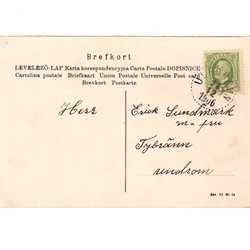 Brefkort
LEVELEZŐ-LAP Karta korespondencyjna Carte Postale DOPISNICE
Cartolina postale Briefkaart Union Postale Universelle Post card
Brevkort Postkarte
12
1906
Herr Erick Sundmark
m. fru
Tybränn
undrom